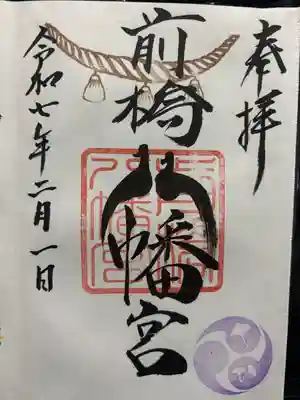 奉拝
前橋八幡宮
令和七年二月一日